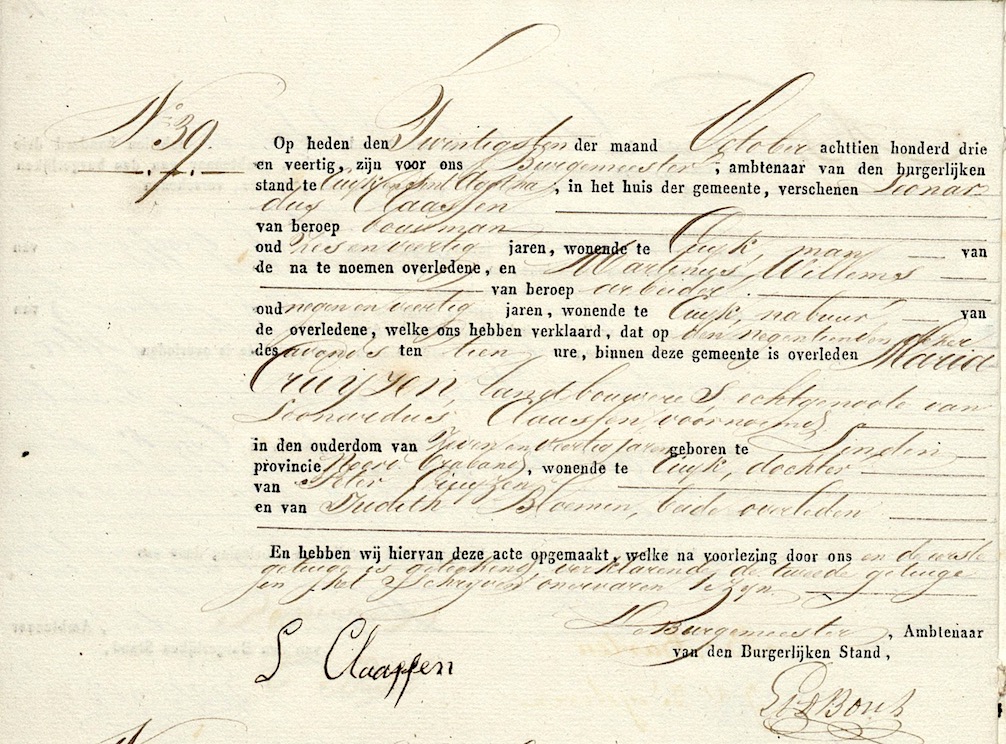 No 39.
Op heden den Twintigsten der maand October achttien honderd drie
en veertig, zijn voor ons Burgemeester, ambtenaar van den burgerlijken
stand te Cuijk en Sint Agatha, in het huis der gemeente, verschenen Leonar
dus Claassen
van beroep bouwman
oud zes en veertig jaren, wonende te Cuijk, man van
de na te noemen overledene, en Martinus Willems
van beroep arbeider.
oud negen en veertig jaren, wonende te Cuijk, nabuur van
de overledene, welke ons hebben verklaard, dat op den negentienden dezer
des avonds ten tien ure, binnen deze gemeente is overleden Maria
Cruijzen, landbouweres, echtgenoote van
Leonardus Claassen voornoemd
in den ouderdom van zeven en veertig jaren geboren te Linden
provincie Noord Braband, wonende te Cuijk, dochter
van Peter Cruijzen
en van Judith Bloemen, beide overleden
En hebben wij hiervan deze acte opgemaakt, welke na voorlezing door ons en de eerste
getuige is geteekend, verklarende de tweede getuige
in het schrijven onervaren te zijn.
De Burgemeester, Ambtenaar
van den Burgerlijken Stand,
L Claassen